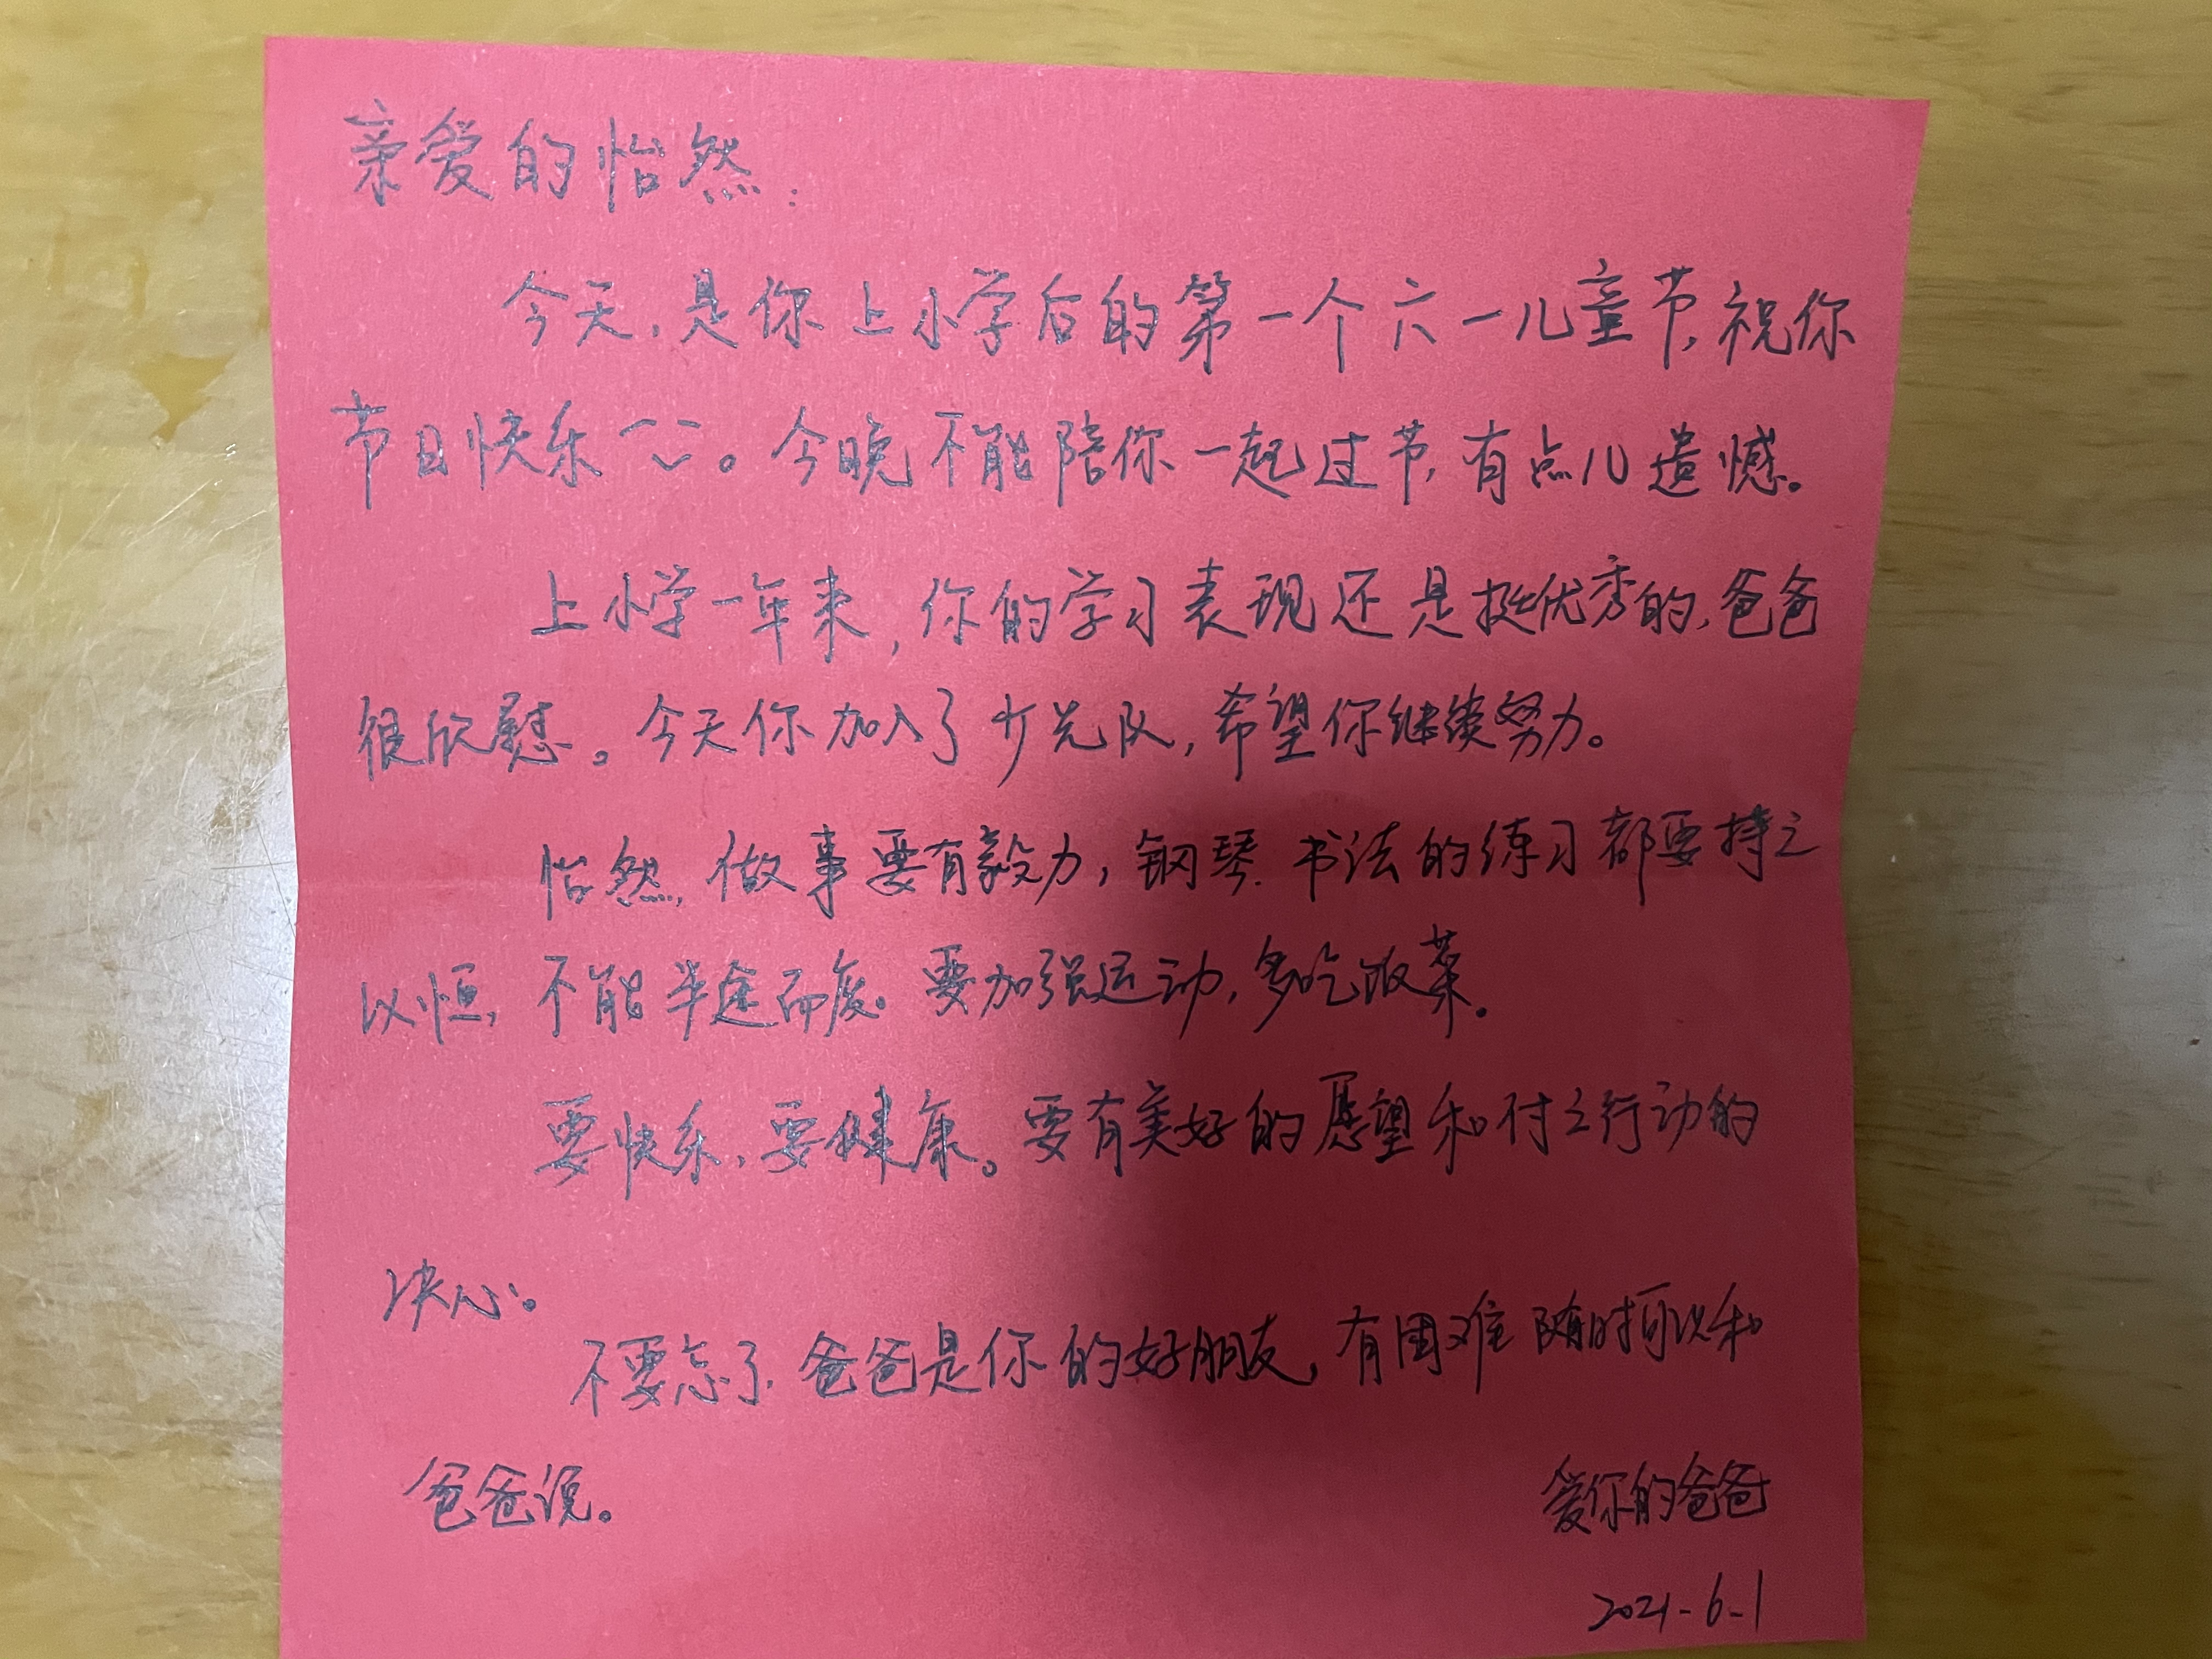 亲爱的怡然:
今天,是你上小学后的第一个六一儿童节,祝你
节日快乐。今晚不能陪你一起过节,有点儿遗憾。
上小学一年来,你的学习表现还是挺优秀的,爸爸
很欣慰。今天你加入了少先队,希望你继续努力。
怡然,做事要有毅力,钢琴、书法的练习都要持之
以恒,不能半途而废。要加强运动,多吃饭菜。
要快乐,要健康。要有美好的愿望和付之行动的
决心。
不要忘了,爸爸是你的好朋友,有困难随时可以和
爸爸说。
爱你的爸爸
2021-6-1